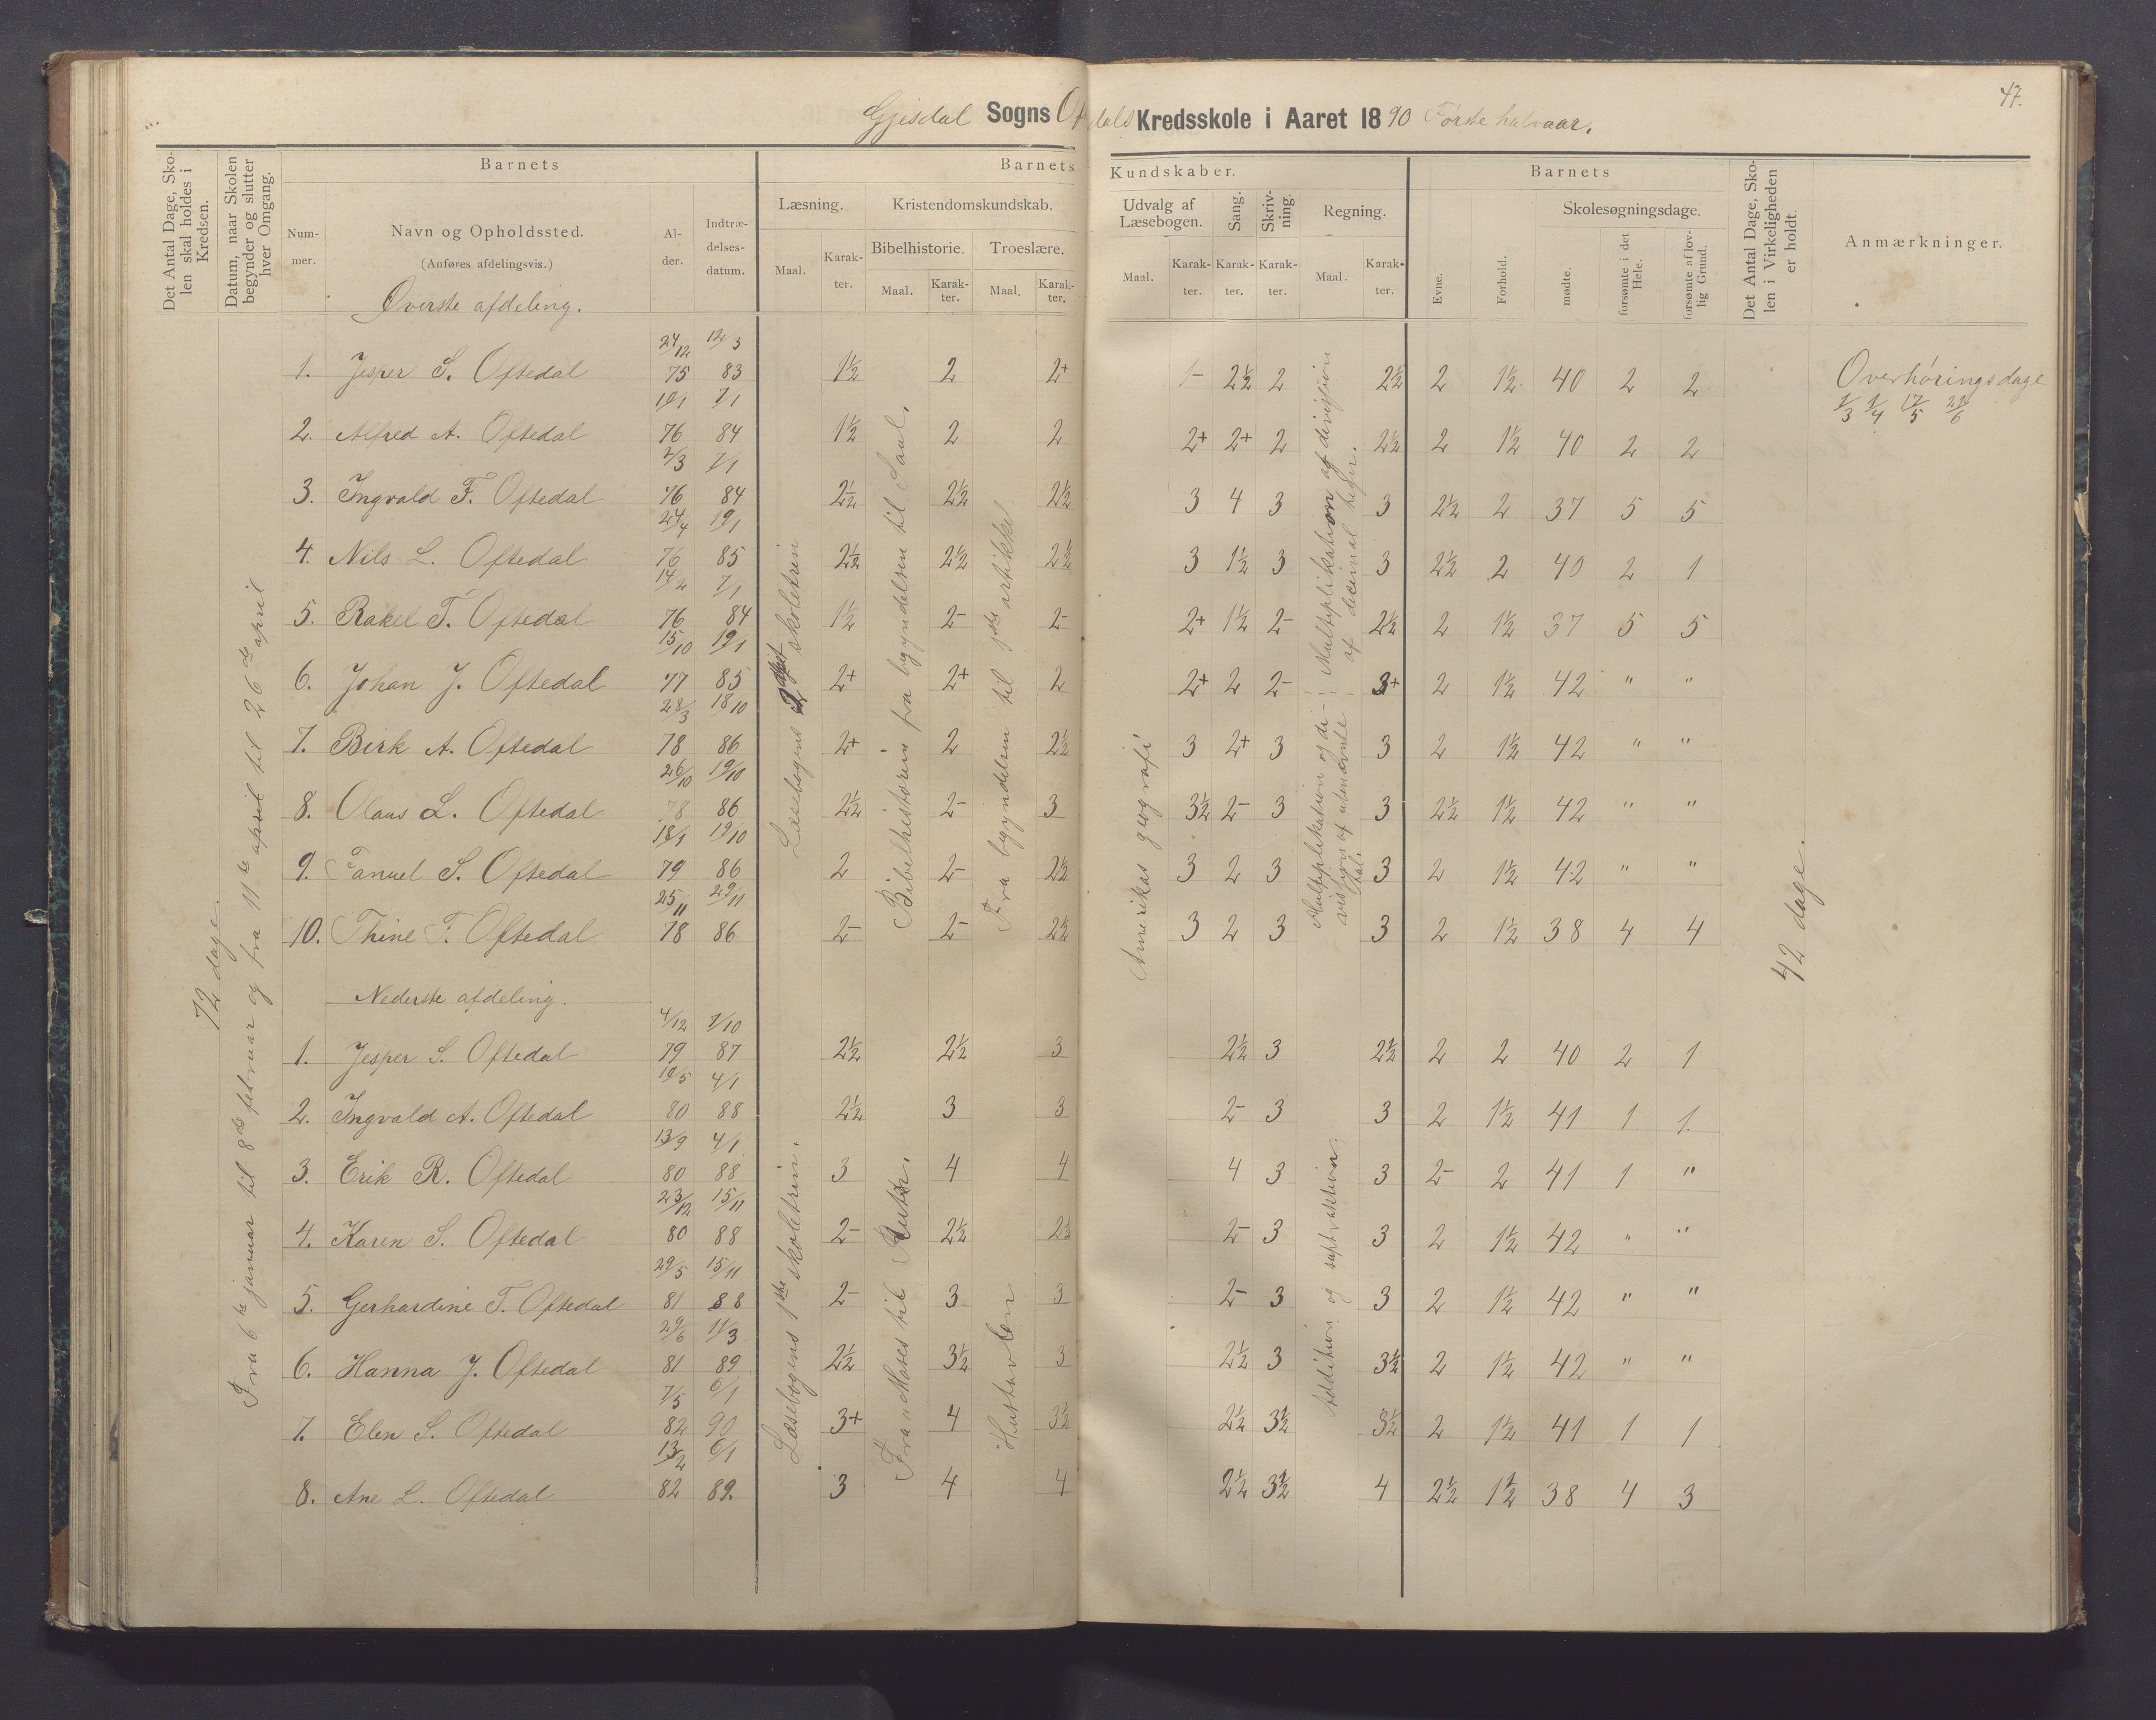 47.
Gjesdal Sogns Oftedals Kredsskole i Aaret 1890 Første halvaar.
Det Antal Dage, Skolen skal holdes i Kredsen.
Datum, naar Skolen begynder og slutter hver Omgang.
Barnets
Nummer.
Navn og Opholdssted.
(Anføres afdelingsvis.)
Alder.
Indtrædelsesdatum.
Barnets Kundskaber.
Læsning.
Maal. Karakter.
Kristendomskundskab.
Bibelhistorie.
Maal. Karakter.
Troeslære.
Maal. Karakter.
Udvalg af Læsebogen.
Maal. Karakter.
Sang.
Karakter.
Skrivning.
Karakter.
Regning.
Maal. Karakter.
Barnets
Evne.
Forhold.
Skolesøgningsdage.
mødte.
forsømte i det Hele.
forsømte af lovlig Grund.
Det Antal Dage, Skolen i Virkeligheden er holdt.
Anmærkninger.
72 dage.
Fra 6te januar til 8de februar og fra 11te april til 26de april
Øverste afdeling.
1. Jesper S. Oftedal 24/12 75 12/3 83 1½ 2 2+ 1- 2½ 2 2½ 2 1½ 40 2 2
2. Alfred A. Oftedal 10/1 76 7/1 84 1½ 2 2 2+ 2+ 2 2½ 2 1½ 40 2 2
3. Ingvald F. Oftedal 2/3 76 7/1 84 2½ 2½ 2½ 3 4 3 3 2½ 2 37 5 5
4. Nils L. Oftedal 24/4 76 19/1 85 2½ 2½ 2½ 3 1½ 3 3 2½ 2 40 2 1
5. Rakel T. Oftedal 14/2 76 7/1 84 1½ 2- 2- 2+ 1½ 2- 2½ 2 1½ 37 5 5
6. Johan J. Oftedal 15/10 77 19/1 85 2+ 2+ 2 2+ 2 2- 3+ 2 1½ 42 " "
7. Birk A. Oftedal 28/3 78 18/10 86 2+ 2 2½ 3 2+ 3 3 2 1½ 42 " "
8. Olaus L. Oftedal 26/10 78 19/10 86 2½ 2- 3 3½ 2- 3 3 2½ 1½ 42 " "
9. Fanuel S. Oftedal 18/1 79 19/10 86 2 2- 2½ 3 2 3 3 2 1½ 42 " "
10. Thine F. Oftedal 25/11 78 29/11 86 2- 2- 2½ 3 2 3 3 2 1½ 38 4 4
Læsebogens skoletrin
Bibelhistorien fra begyndelsen til Saul.
Fra begyndelsen til artikkel.
Amerikas geografi
Multiplikation og division af decimal
Multiplikation og division af ubenævnte tal.
42 dage.
Overhøringsdage
1/3 1/4 17/5 21/6
Nederste afdeling.
1. Jesper S. Oftedal 4/12 79 7/10 87 2½ 2½ 3 2½ 3 2½ 2 2 40 2 1
2. Ingvald A. Oftedal 10/5 80 4/1 88 2½ 3 3 2- 3 3 2 1½ 41 1 1
3. Erik R. Oftedal 13/9 80 4/1 88 3 4 4 4 3 3 2- 2 41 1 "
4. Karen S. Oftedal 23/12 80 15/11 88 2- 2½ 2½ 2- 3 3 2 1½ 42 " "
5. Gerhardine T. Oftedal 29/5 81 15/11 88 2- 3 3 2- 3 3 2 1½ 42 " "
6. Hanna J. Oftedal 29/6 81 11/3 89 2½ 3½ 3 2½ 3 3½ 2 1½ 42 " "
7. Elen S. Oftedal 7/5 82 6/1 90 3+ 4 3½ 2½ 3½ 3½ 2 1½ 41 1 1
8. Ane L. Oftedal 13/2 82 6/1 89. 3 4 4 2½ 3½ 4 2½ 1½ 38 4 3
Læsebogens 1ste skoletrin.
Fra Moses til Ruth.
Hustavlen
Addition og suptraktion.